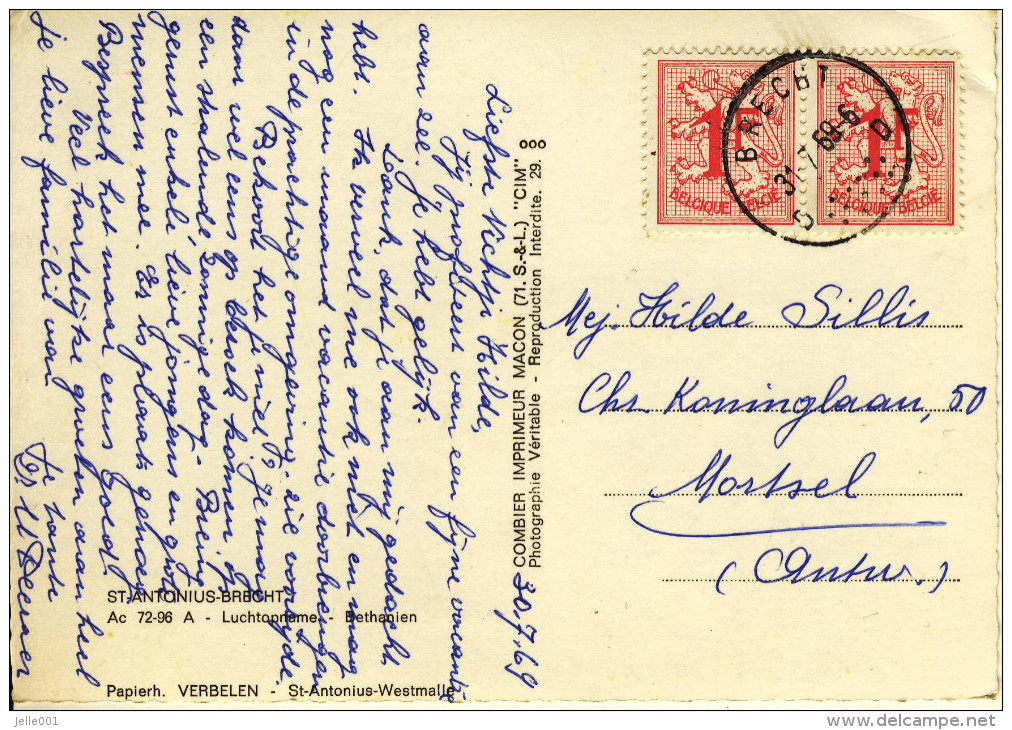 30.7.69
Liefste Nichtje Hilde,
Jij profiteert van een fijne vacantie
aan zee. Je hebt gelijk.
Dank, dat je aan mij gedacht
hebt. Ik verveel me ook niet en mag
nog een maand vacantie doorbrengen
in de prachtige omgeving zie voorzijde.
Bekoort het je niet, je mag
daar wel eens op bezoek komen op
een stralende zonnige dag - Breng
gerust enkele lieve jongens en grote
mensen mee. Er is plaats genoeg
Bespreek het maar eens
Veel hartelijke groeten aan heel
je lieve familie van
je tante
ST-ANTONIUS-BRECHT
Ac 72-96 A - Luchtopname - Bethanien
Papierh. VERBELEN - St-Antonius-Westmalle
COMBIER IMPRIMEUR MACON (71. S.-&-L.) "CIM"
Photographie Véritable - Reproduction Interdite. 29.
1F
BELGIQUE-BELGIE
1F
BELGIQUE-BELGIE
BRECHT
D
Mej. Hilde Sillis
Chr. Koninglaan, 50
Mortsel
(Antw.)
jelle001
delcampe.net